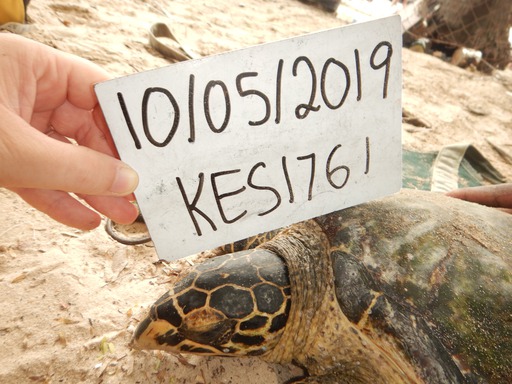 10/05/2019
KES1761